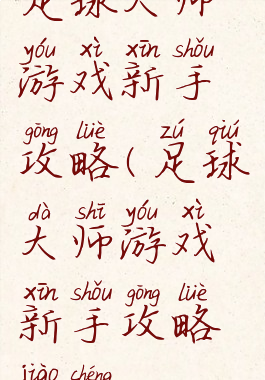 足球大师
yóu xì xīn shǒu
游戏新手
gōng lüè zú qiú
攻略(足球
dà shī yóu xì
大师游戏
xīn shǒu gōng lüè
新手攻略
jiào chéng